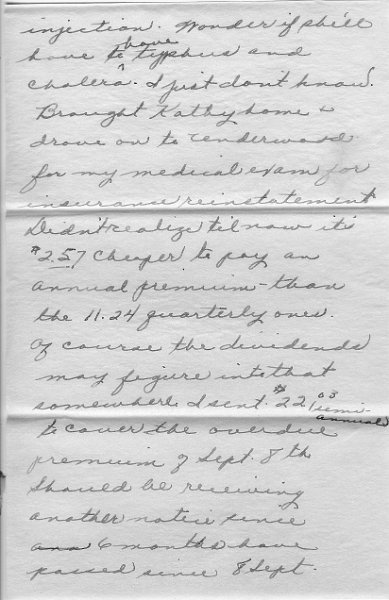 injection. Wonder if she'll
have to have typhus and
cholera. I just don't know.
Brought Kathy home &
drove on to Underwood
for my medical exam for
insurance reinstatement
Didn't realize til now it's
$2.57 cheaper to pay an
annual premium - than
the 11.24 quarterly ones.
Of course the dividends
may figure into that
somewhere. I sent $22.03 semi-annual
to cover the overdue
premium of Sept. 8th
Should be receiving
another notice since
6 months have
passed since 8 Sept.